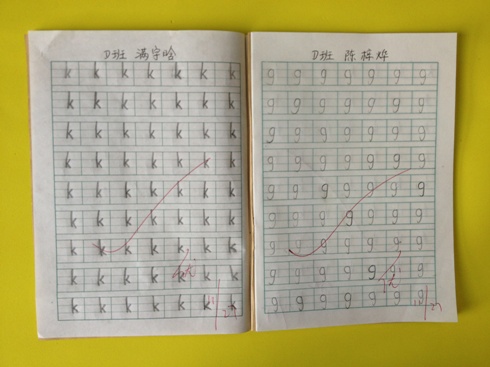 D班 满宇晗
k k k k k k k
k k k k k k k
k k k k k k k
k k k k k k k
k k k k k k k
k k k k k k k
k k k k k k k
k k k k k k k
k k k k k k k
优
11/27
D班 陈栎烨
g g g g g g g
g g g g g g g
g g g g g g g
g g g g g g g
g g g g g g g
g g g g g g g
g g g g g g g
g g g g g g g
g g g g g g g
优
11/27